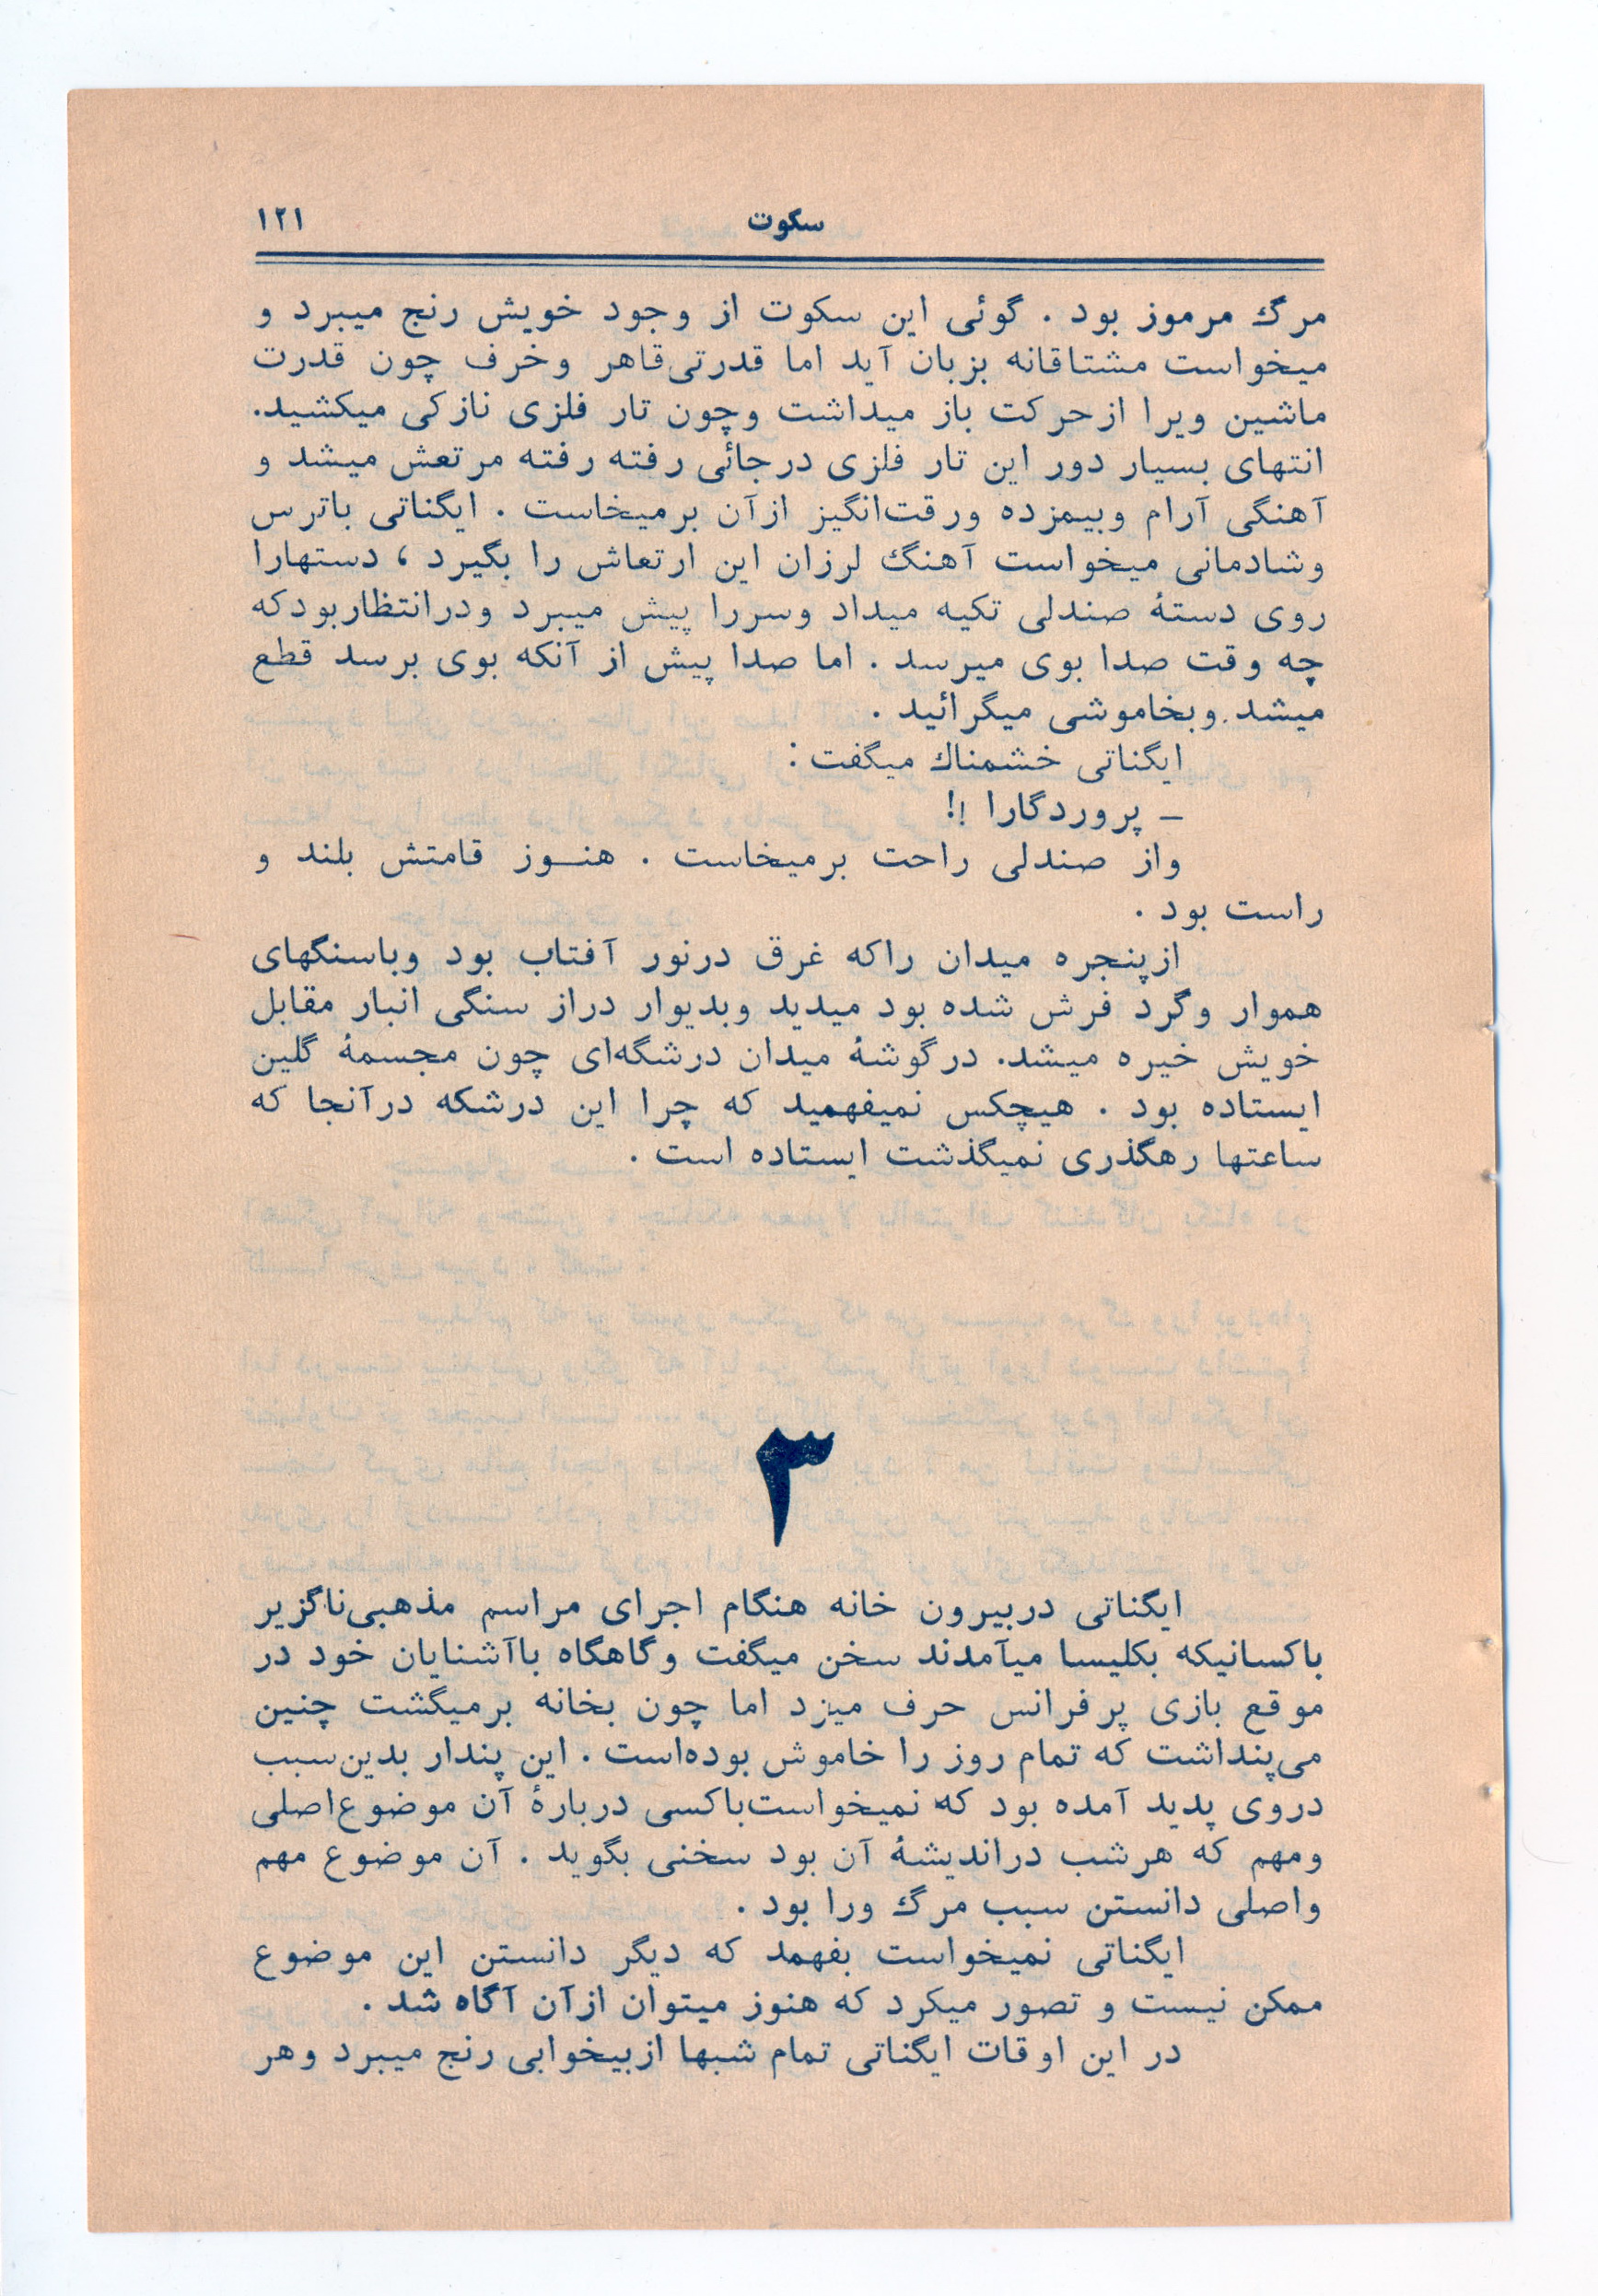 سکوت ۱۲۱
مرگ مرموز بود . گوئی این سکوت از وجود خویش رنج میبرد و
میخواست مشتاقانه بزبان آید اما قدرتی‌قاهر وخرف چون قدرت
ماشین ویرا ازحرکت باز میداشت وچون تار فلزی نازکی میکشید.
انتهای بسیار دور این تار فلزی درجائی رفته رفته مرتعش میشد و
آهنگی آرام وبیمزده ورقت‌انگیز ازآن برمیخاست . ایگناتی باترس
وشادمانی میخواست آهنگ لرزان این ارتعاش را بگیرد ، دستهارا
روی دستهٔ صندلی تکیه میداد وسررا پیش میبرد ودرانتظاربودکه
چه وقت صدا بوی میرسد . اما صدا پیش از آنکه بوی برسد قطع
میشد وبخاموشی میگرائید .
ایگناتی خشمناك میگفت :
– پروردگارا !!
واز صندلی راحت برمیخاست . هنـوز قامتش بلند و
راست بود .
ازپنجره میدان راکه غرق درنور آفتاب بود وباسنگهای
هموار وگرد فرش شده بود میدید وبدیوار دراز سنگی انبار مقابل
خویش خیره میشد. درگوشهٔ میدان درشگه‌ای چون مجسمهٔ گلین
ایستاده بود . هیچکس نمیفهمید که چرا این درشکه درآنجا که
ساعتها رهگذری نمیگذشت ایستاده است .
۳
ایگناتی دربیرون خانه هنگام اجرای مراسم مذهبی‌ناگزیر
باکسانیکه بکلیسا میآمدند سخن میگفت وگاهگاه باآشنایان خود در
موقع بازی پرفرانس حرف میزد اما چون بخانه برمیگشت چنین
می‌پنداشت که تمام روز را خاموش بوده‌است . این پندار بدین‌سبب
دروی پدید آمده بود که نمیخواست‌باکسی دربارهٔ آن موضوع‌اصلی
ومهم که هرشب دراندیشهٔ آن بود سخنی بگوید . آن موضوع مهم
واصلی دانستن سبب مرگ ورا بود .
ایگناتی نمیخواست بفهمد که دیگر دانستن این موضوع
ممکن نیست و تصور میکرد که هنوز میتوان ازآن آگاه شد .
در این اوقات ایگناتی تمام شبها ازبیخوابی رنج میبرد وهر